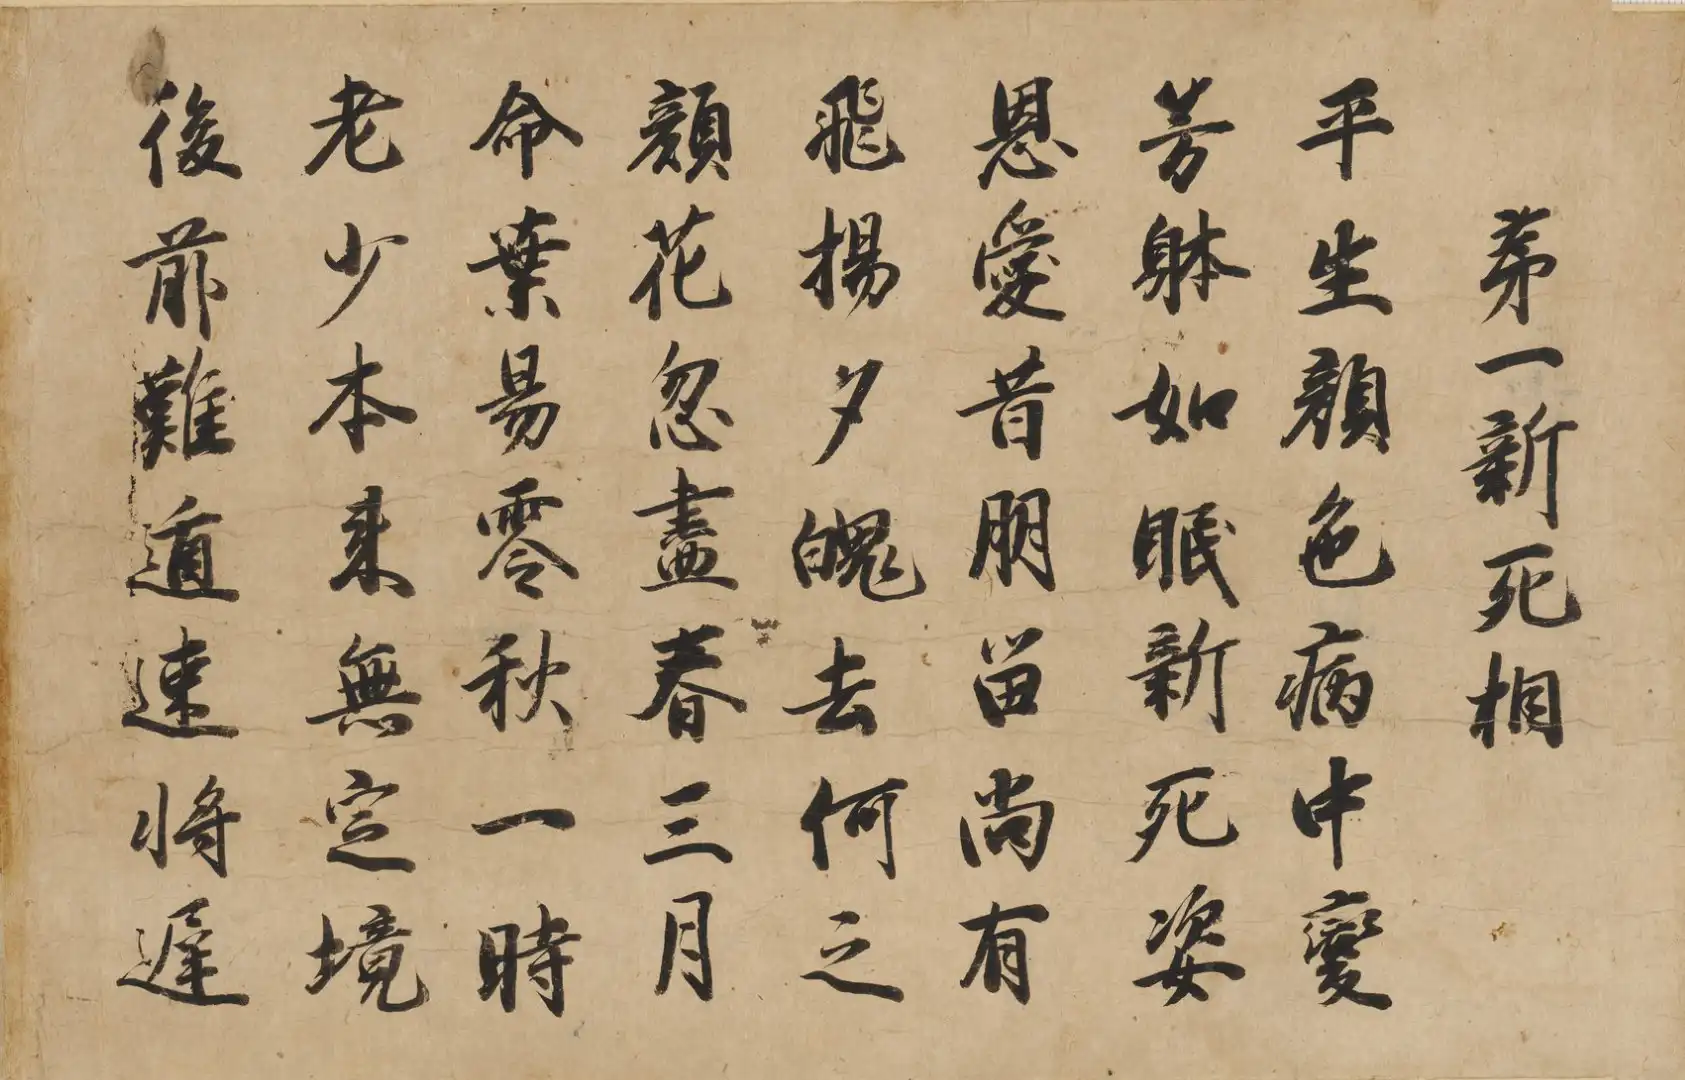 第一新死相
平生顔色病中變
芳躰如眠新死姿
恩愛昔朋留尚有
飛揚夕魄去何之
顔花忽盡春三月
命葉易零秋一時
老少本来無定境
後前難遁速将遲